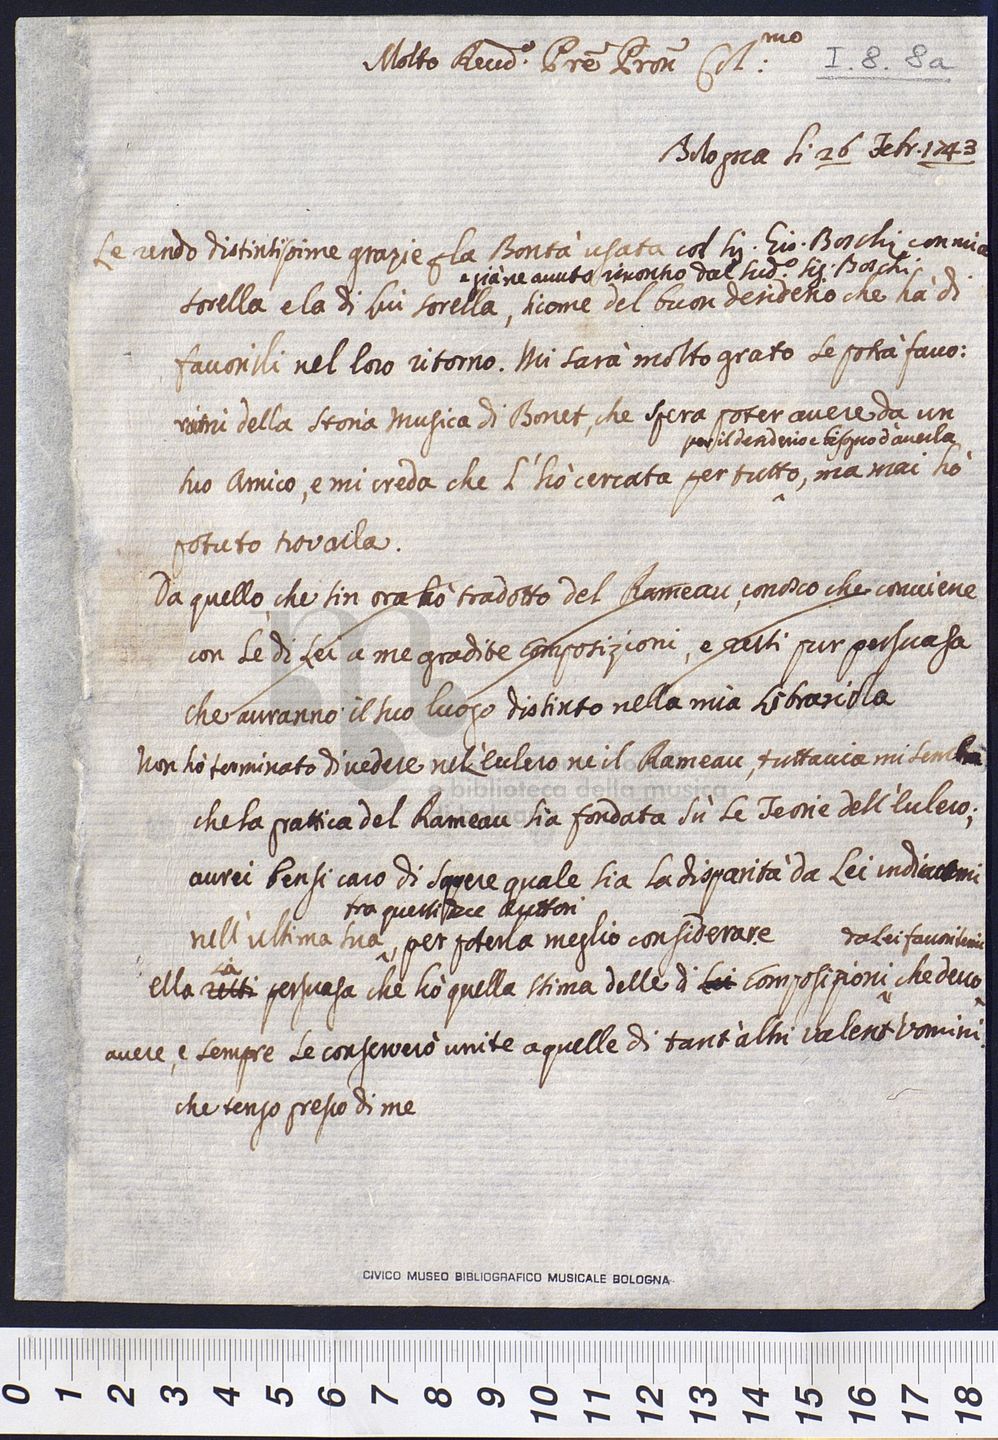 Molto Rend.º Prē Pron̄ Col:mo
I. 8. 8a
Bologna li 26 Febr. 1743
Le rendo distintissime grazie p la Bontà usata col Sig. Gio. Boschi con mia
e già ne avuto riscontro dal Sud.º Sig. Boschi
sorella e la di lui sorella, sicome del buon desiderio che hà di
favorirli nel loro ritorno. Mi sarà molto grato se potrà favo:
rirmi della Storia Musica di Bonet, che spera poter avere da un
per il desiderio e bisogno d'averla
suo Amico, e mi creda che l'hò cercata per tutto, ma mai hò
potuto trovarla.
Da quello, che sin ora hò tradotto del Rameau, conosco che conviene
con Lè di Lei a me gradite composizioni, e resti pur persuasa
che avranno il suo luogo distinto nella mia Librariola
Non hò terminato di vedere nè l'Eulero ne il Rameau, tuttavia mi sembra
che la prattica del Rameau sia fondata sù Le Teorie dell'Eulero;
avrei bensi caro di sapere quale sia la disparità da Lei indicatami
tra questi due Auttori
nell'ultima sua, per poterla meglio considerare
da Lei favoritemi
sia
ella resti persuasa che hò quella stima delle di Lei composizioni che devo
avere, e sempre Le conserverò unite a quelle di tant'altri valent'Vomini
che tengo presso di me
e biblioteca della musica
CIVICO MUSEO BIBLIOGRAFICO MUSICALE BOLOGNA
0 1 2 3 4 5 6 7 8 9 10 11 12 13 14 15 16 17 18